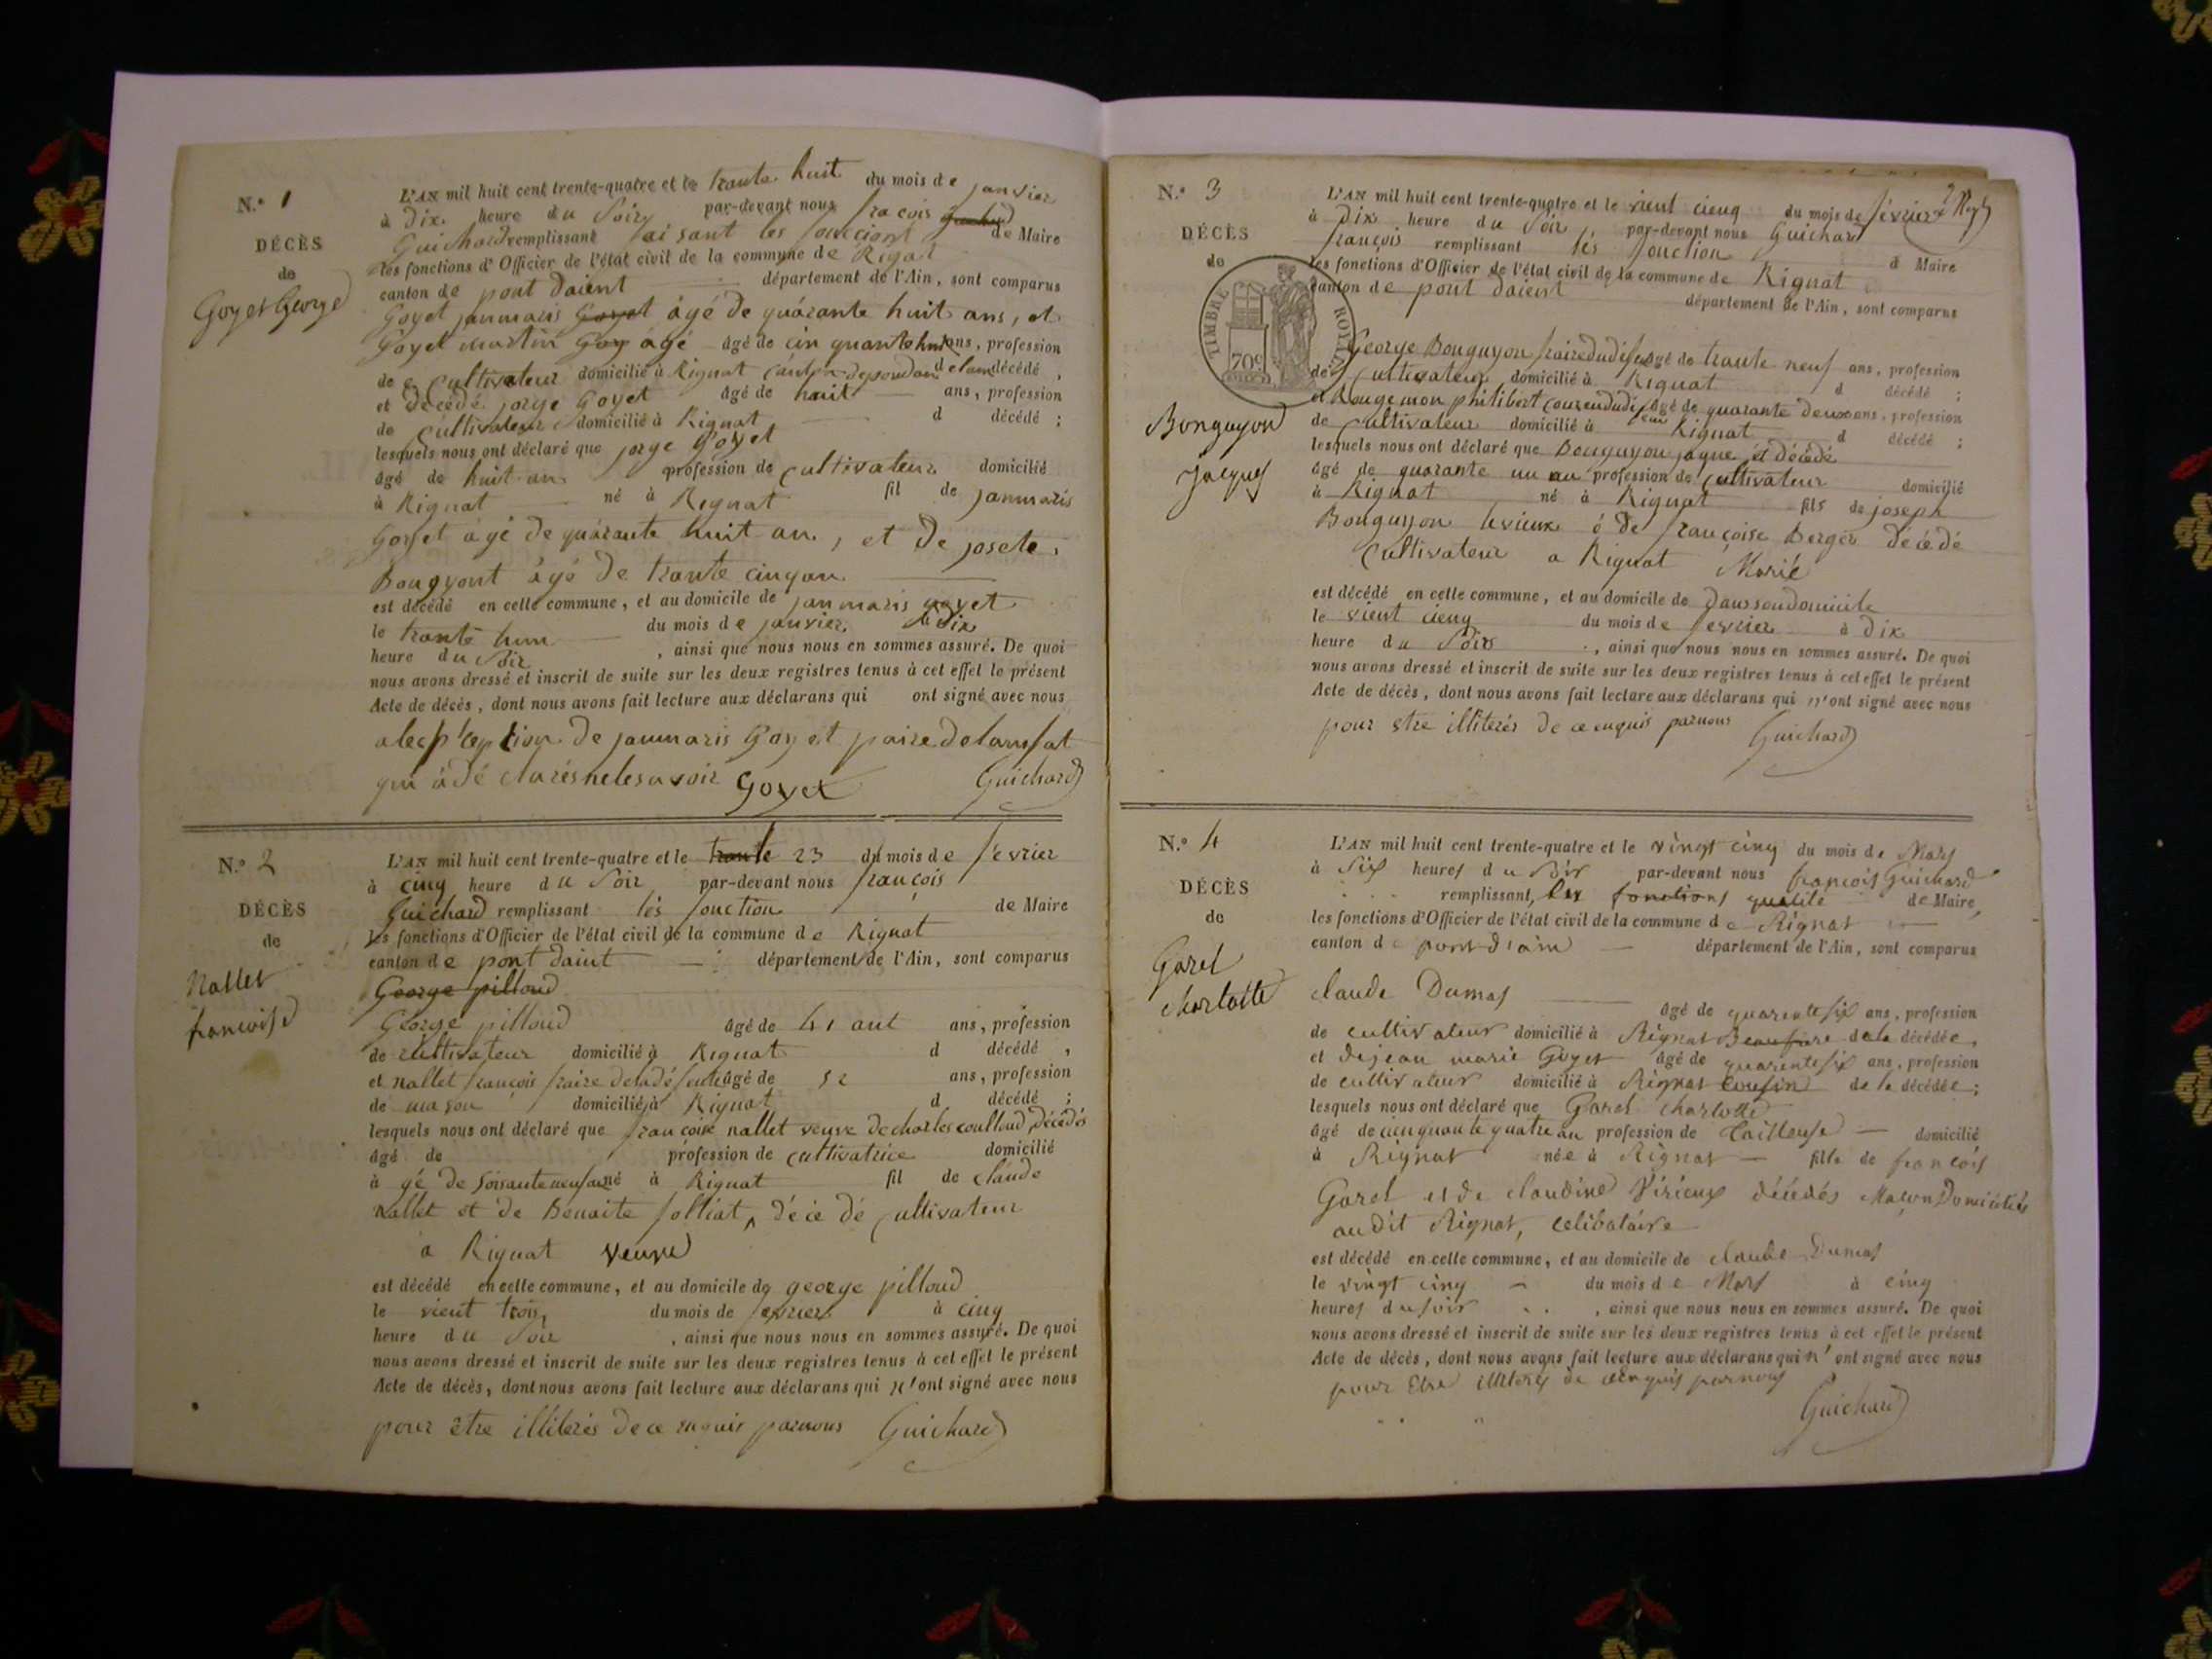 N.° 1
DÉCÈS
de
Goyet George
L'AN mil huit cent trente-quatre et le trante huit du mois de janvier
à dix heure du Soir, par-devant nous fracois
Guichard remplissant faisant les fonccions de Maire
les fonctions d'Officier de l'état civil de la commune de Rigat
canton de pont daient département de l'Ain, sont comparus
Goyet janmaris Goyet âgé de quárante huit ans, et
Goyet martin Goy âgé âgé de cin quante huit ans, profession
de Cultivateur domicilié à Rignat décédé,
et décédé jorge Goyet âgé de huit ans, profession
de Cultivateur domicilié à Rignat d décédé;
lesquels nous ont déclaré que jorge Goyet
âgé de huit an profession de Cultivateur domicilié
à Rignat né à Rignat fil de janmaris
Goyet agé de quárante huit an, et de josete
Bougyont âgé de trante cinqan
est décédé en cette commune, et au domicile de janmaris goyet
le trante hun du mois de janvier à dix
heure du Soir, ainsi que nous nous en sommes assuré. De quoi
nous avons dressé et inscrit de suite sur les deux registres tenus à cet effet le présent
Acte de décès, dont nous avons fait lecture aux déclarans qui ont signé avec nous
de janmaris Goyet paire
qui à dé clarés nelesavoir Goyet Guichard
N.° 2
DÉCÈS
de
Nallet
francoise
L'AN mil huit cent trente-quatre et le trante 23 du mois de fevrier
à cinq heure du Soir par-devant nous francois
Guichard remplissant lés fonction de Maire
les fonctions d'Officier de l'état civil de la commune de Rignat
canton de pont daint département de l'Ain, sont comparus
George pilloud
George pilloud âgé de 41 ant ans, profession
de cultivateur domicilié à Rignat d décédé,
et nallet francois fraire deladéfeute âgé de 52 ans, profession
de mason domicilié à Rignat d décédé;
lesquels nous ont déclaré que francoise nallet veuve decharles coulloud décédés
âgé de profession de cultivatrice domicilié
à gé de soisanteneufan né à Rignat fil de claude
nallet et de Benoite folliat, décédé cultivateur
a Rignat veuve
est décédé en cette commune, et au domicile de george pilloud
le vient trois du mois de fevrier à cinq
heure du Soir, ainsi que nous nous en sommes assuré. De quoi
nous avons dressé et inscrit de suite sur les deux registres tenus à cet effet le présent
Acte de décès, dont nous avons fait lecture aux déclarans qui n'ont signé avec nous
pour etre illiterés de ce enquis parnous Guichard
N.° 3
DÉCÈS
de
Bonguyon
Jacques
TIMBRE ROYAL
70c
L'AN mil huit cent trente-quatre et le vient cienq du mois de février
à dix heure du Soir, par-devant nous Guichard
francois remplissant les fonction d Maire
les fonctions d'Officier de l'état civil de la commune de Rignat
canton de pont daient département de l'Ain, sont comparus
George Bonguyon frairedudéfeu âgé de trante neuf ans, profession
de Cultivateur domicilié à Rignat d décédé;
et Rougemon philibert âgé de quarante deux ans, profession
de cultivateur domicilié à Rignat d décédé;
lesquels nous ont déclaré que Bonguyon jaque et décédé
âgé de quarante un an profession de Cultivateur domicilié
à Rignat né à Rignat fils de joseph
Bonguyon levieux é de francoise Berger décédé
Cultivateur a Rignat Marié
est décédé en cette commune, et au domicile de danssondomicile
le vient cienq du mois de fevrier à dix
heure du Soir, ainsi que nous nous en sommes assuré. De quoi
nous avons dressé et inscrit de suite sur les deux registres tenus à cet effet le présent
Acte de décès, dont nous avons fait lecture aux déclarans qui n'ont signé avec nous
pour etre illiterés de ce enquis parnous Guichard
N.° 4
DÉCÈS
de
Garel
charlotte
L'AN mil huit cent trente-quatre et le vingt cinq du mois de Mars
à Six heures du Soir par-devant nous francois Guichard
remplissant, les fonctions qualité de Maire,
les fonctions d'Officier de l'état civil de la commune de Rignat
canton de pont d'ain département de l'Ain, sont comparus
claude Dumas âgé de quarente six ans, profession
de cultivateur domicilié à Rignat Beaufrere de la décédée,
et de jean marie Goyet âgé de quarente six ans, profession
de cultivateur domicilié à Rignat Cousin de la décédée;
lesquels nous ont déclaré que Garel charlotte
âgé de cienquante quatre an profession de Tailleuse domicilié
à Rignat née à Rignat fille de francois
Garel et de claudine Virieux décédés Maçon Domiciliés
audit Rignat, celibataire
est décédé en cette commune, et au domicile de claude Dumas
le vingt cinq du mois de Mars à cinq
heures dusoir, ainsi que nous nous en sommes assuré. De quoi
nous avons dressé et inscrit de suite sur les deux registres tenus à cet effet le présent
Acte de décès, dont nous avons fait lecture aux déclarans qui n'ont signé avec nous
pour Etre illiterés de ce enquis parnous
Guichard